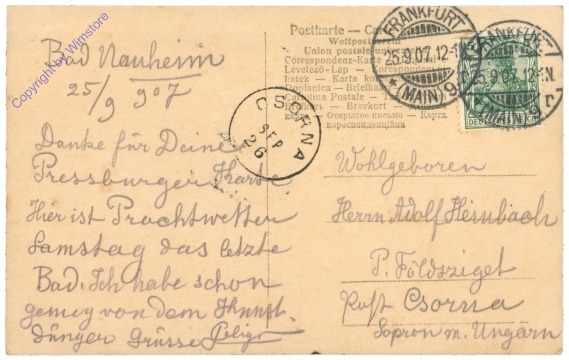 Copyright by Wimstore
Bad Nauheim
25/9 907
Danke für Deine
Pressburger Karte
Hier ist Prachtwetter
Samstag das letzte
Bad. Ich habe schon
genug von dem
dünger Grüsse
Postkarte — Car
Weltpostverein
Union postale univers
Correspondenz-Karte
Levelező-Lap — Korespondenc
Karta kore
Dopisnica — Briefka
Cartolina Postale
Brevkort
Открытое письмо — Карта
FRANKFURT
25.9.07.12-1N.
(MAIN) 9
FRANKFURT
25.9.07.12-1N.
(MAIN)
CSORNA
SEP
26
Wohlgeboren
Herrn Adolf Heimbach
P. Földsziget
Post Csorna
Sopron m. Ungarn